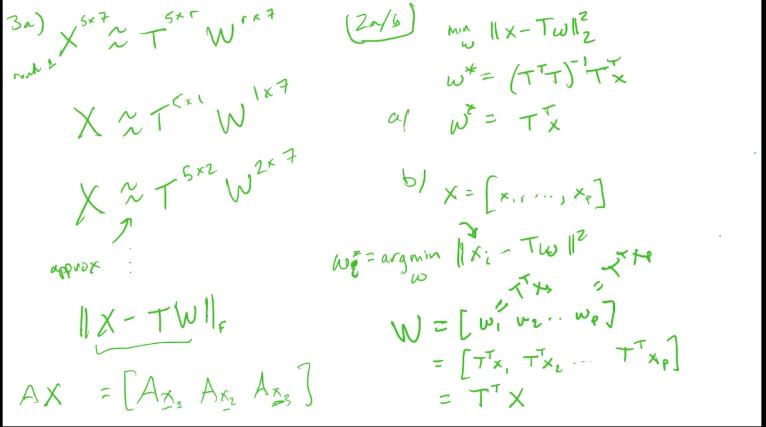 3a) X^{5x7} ≈ T^{5xr} W^{rx7}
rank 1
X ≈ T^{5x1} W^{1x7}
X ≈ T^{5x2} W^{2x7}
approx ⋮
||X - TW||_F
AX = [Ax_1 Ax_2 Ax_3]
(2a/b) min_w ||x - Tw||_2^2
w* = (T^T T)^{-1} T^T x
a/ w* = T^T x
b) X = [x_1, ..., x_p]
w_i* = argmin_w ||x_i - Tw||^2
= T^T x_1 = T^T x_p
W = [w_1 w_2 .. w_p]
= [T^T x_1 T^T x_2 ... T^T x_p]
= T^T X